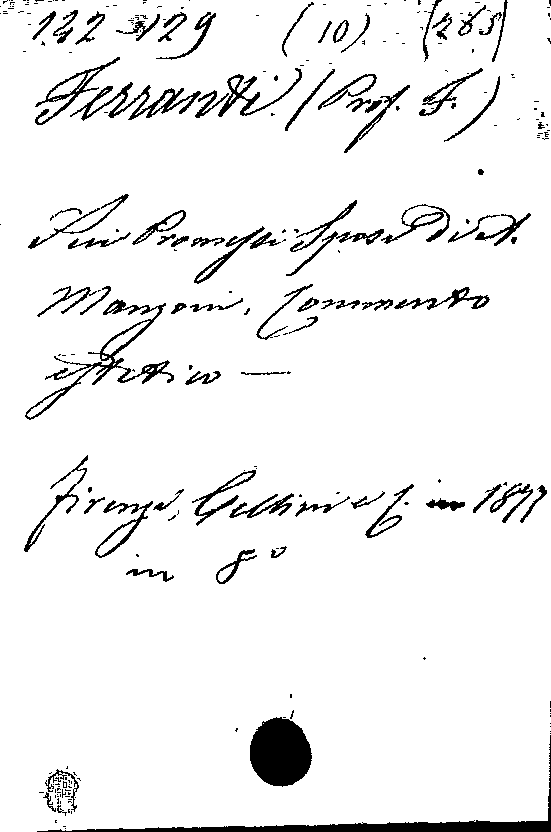 132-129 (10) (265)
Ferranti (Prof. F.)
Sui Promessi Sposi di A.
Manzoni. Commento
estetico —
Firenze, Cellini e C. 1877
in 8º